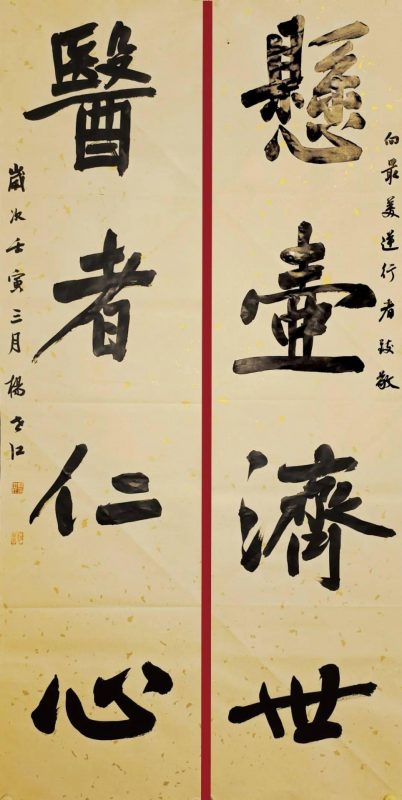 向最美逆行者致敬
懸壺濟世
醫者仁心
歲次壬寅三月楊老江